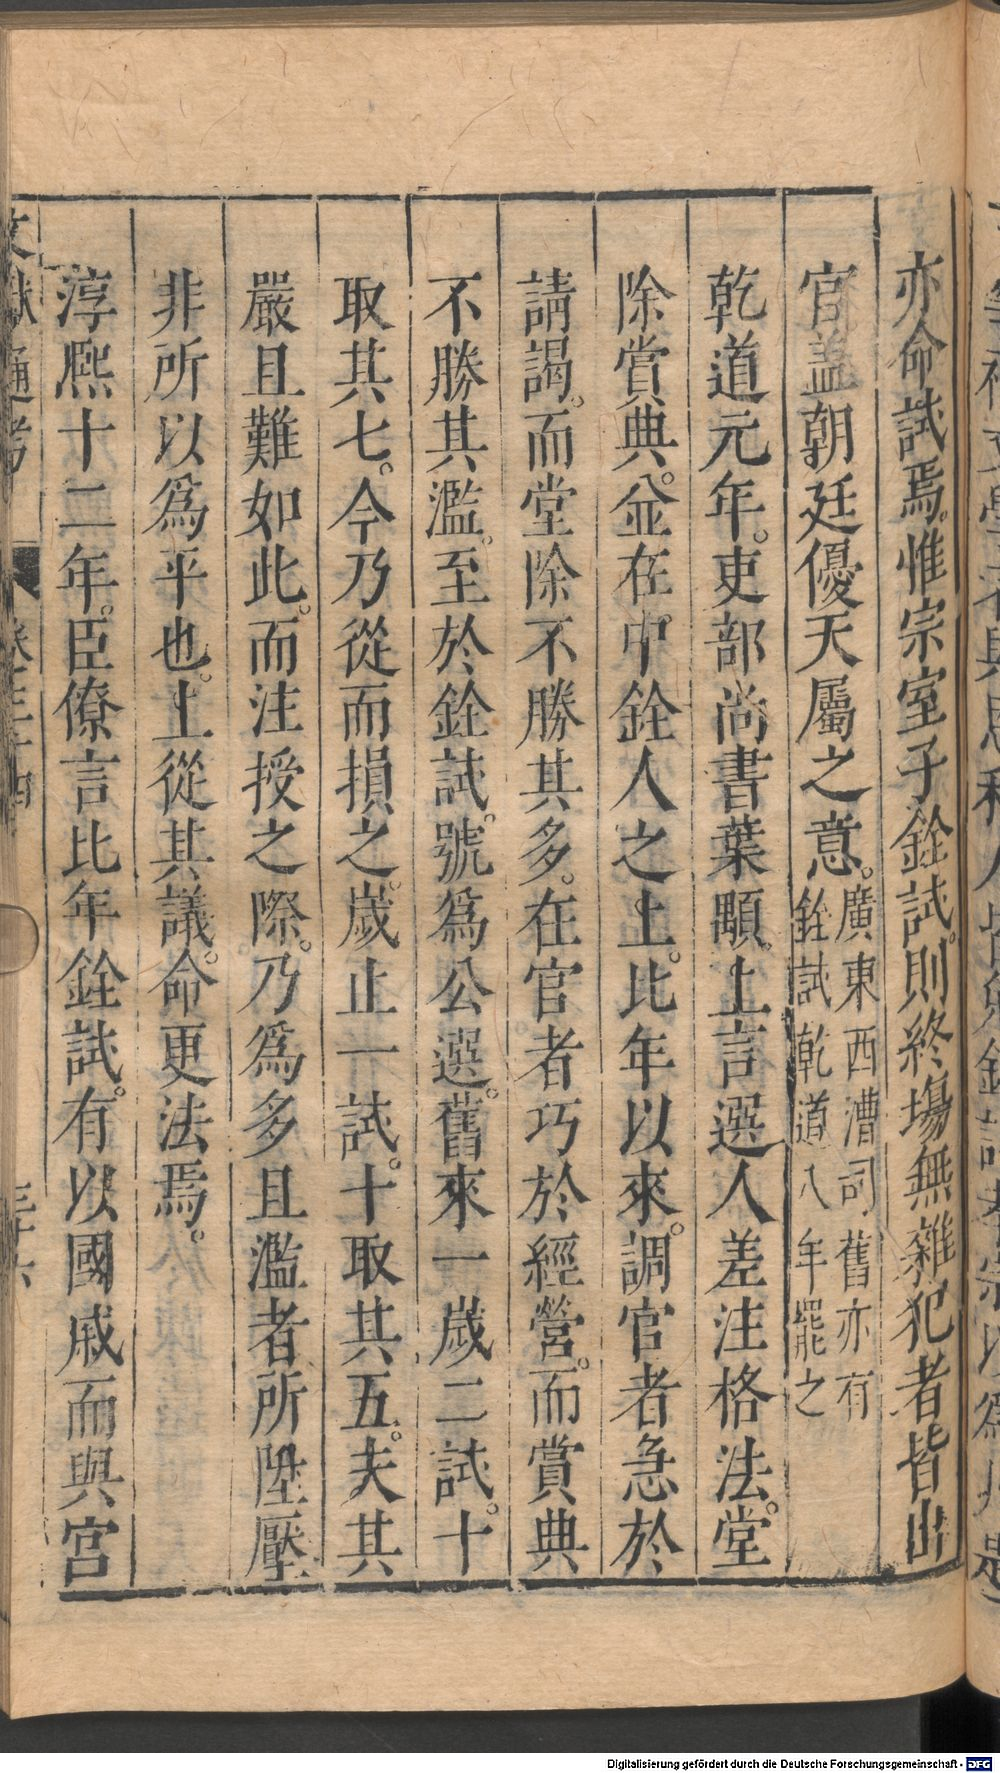 亦命試焉。惟宗室子銓試。則終塲無雜犯者皆出
官。蓋朝廷優天屬之意。廣東西漕司舊亦有
銓試乾道八年罷之
乾道元年。吏部尚書葉顒。上言選人差注格法。堂
除賞典。並在中銓人之上。比年以來。調官者急於
請謁。而堂除不勝其多。在官者巧於經營。而賞典
不勝其濫。至於銓試。號爲公選。舊來一歲二試。十
取其七。今乃從而損之。歲止一試。十取其五。夫其
嚴且難如此。而注授之際。乃爲多且濫者所陞壓
非所以爲平也。上從其議。命更法焉。
淳熙十二年。臣僚言比年銓試。有以國戚而與宫
文獻通考 卷三十四 三十六
Digitalisierung gefördert durch die Deutsche Forschungsgemeinschaft - DFG